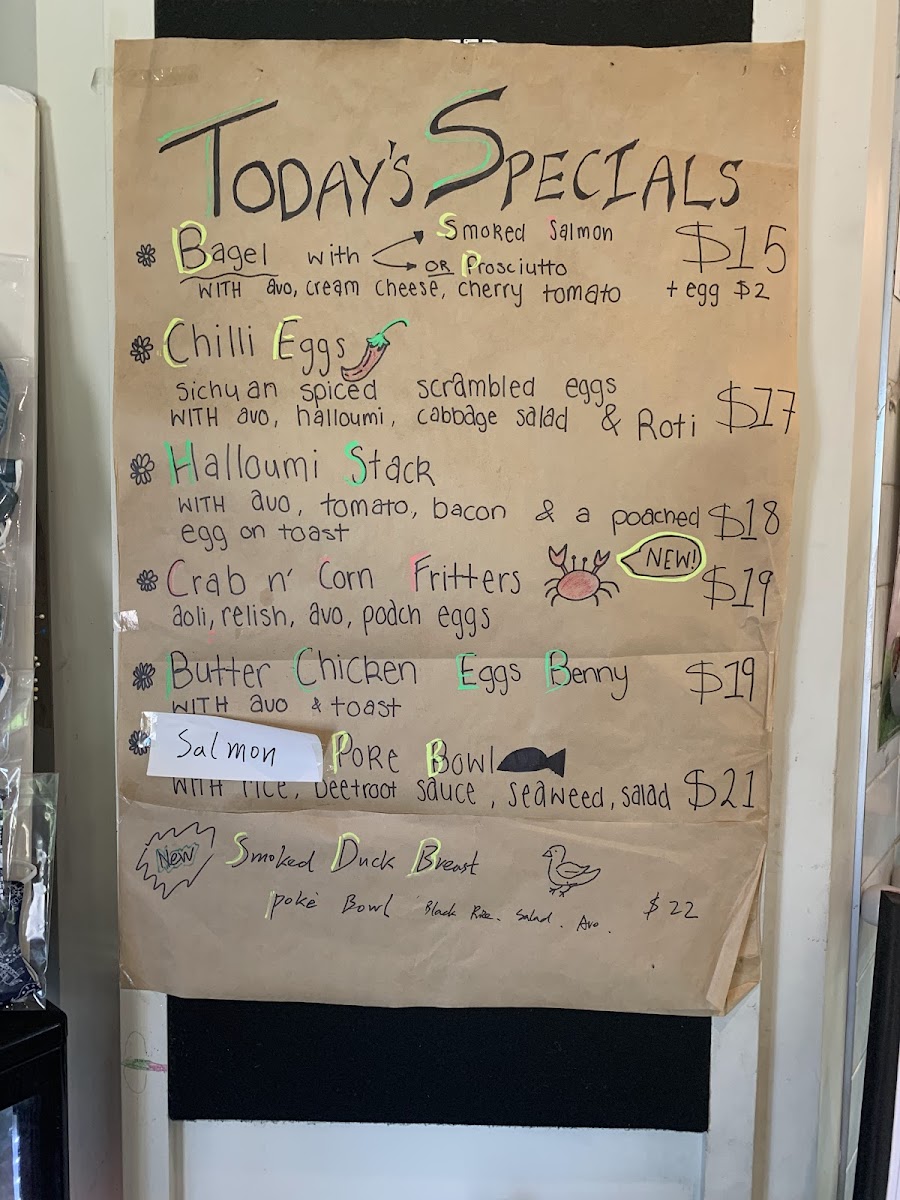 TODAY'S SPECIALS
Bagel with Smoked Salmon $15
OR Prosciutto
WITH avo, cream cheese, cherry tomato + egg $2
Chilli Eggs
Sichuan spiced scrambled eggs
WITH avo, halloumi, cabbage salad & Roti $17
Halloumi Stack
WITH avo, tomato, bacon & a poached $18
egg on toast
Crab n' Corn Fritters NEW! $19
aoli, relish, avo, poach eggs
Butter Chicken Eggs Benny $19
WITH avo & toast
Salmon Poke Bowl
WITH rice, beetroot sauce, seaweed, salad $21
New Smoked Duck Breast
poké Bowl Black Rice. Salad. Avo. $22